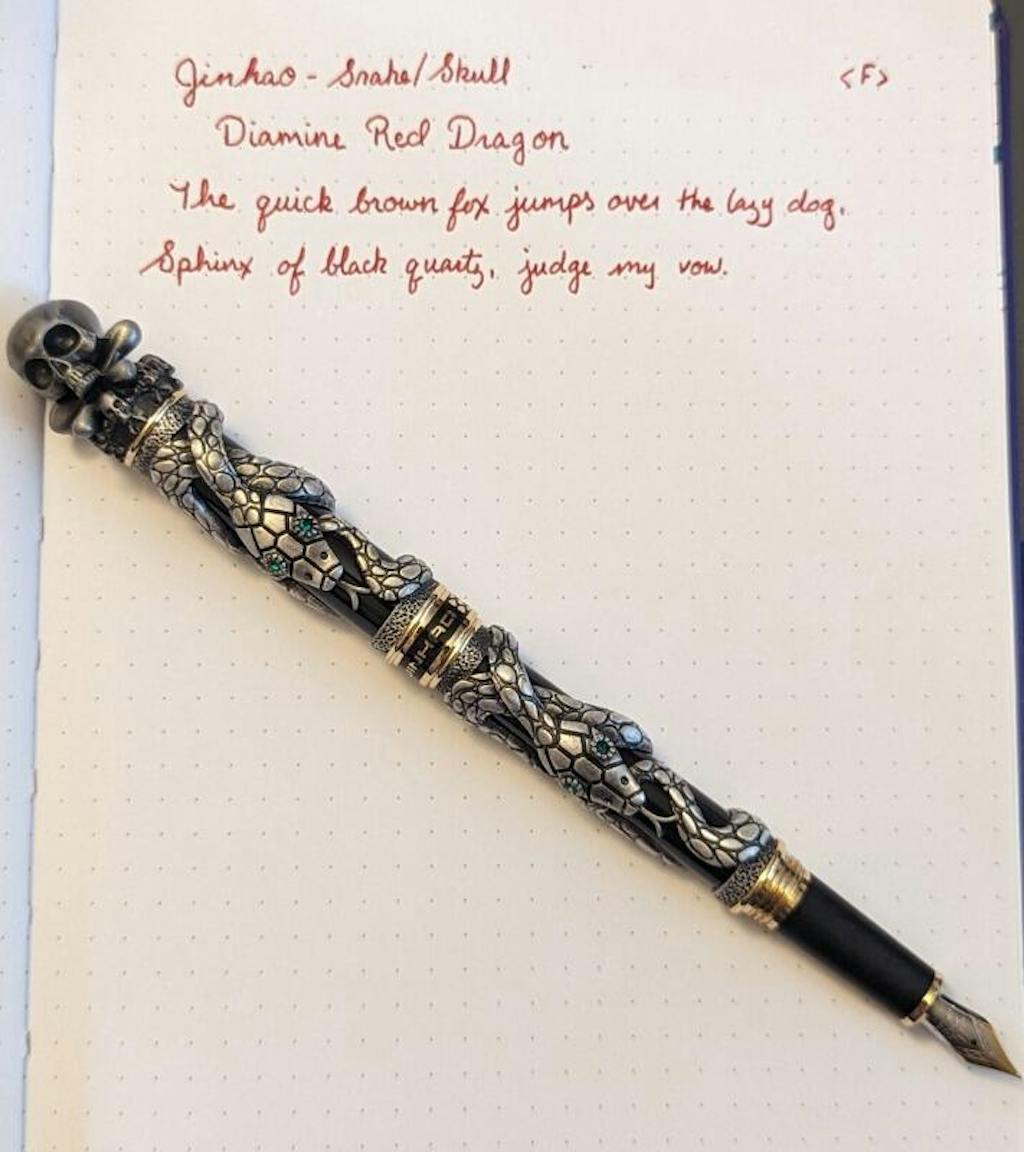 Jinhao - Snake/Skull <F>
Diamine Red Dragon
The quick brown fox jumps over the lazy dog.
Sphinx of black quartz, judge my vow.
JINHAO